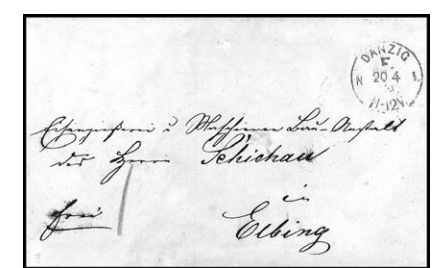 DANZIG
F
N 20 4 1
11-12V
Eisengießerei u Maschinen Bau-Anstalt
des Herrn Schichau
in
frei
Elbing